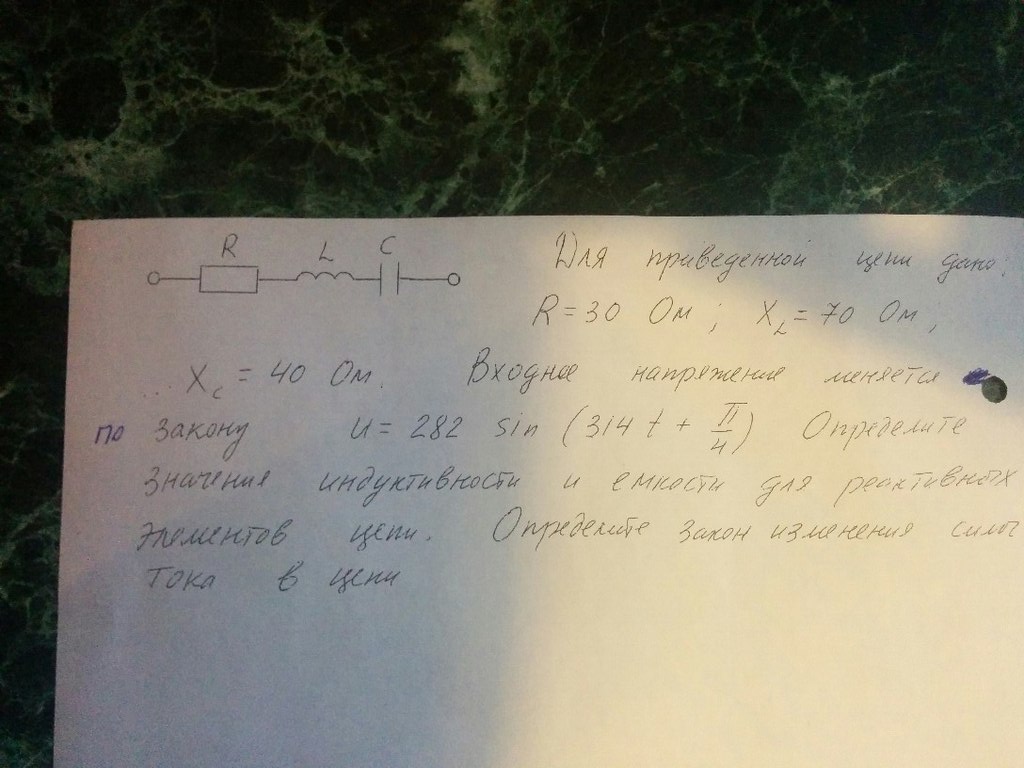 R L C
Для приведенной цепи дано:
R = 30 Ом; X_L = 70 Ом,
X_c = 40 Ом. Входное напряжение меняется
по закону u = 282 sin (314 t + π/4) Определите
значения индуктивности и емкости для реактивных
элементов цепи. Определите закон изменения силы
тока в цепи